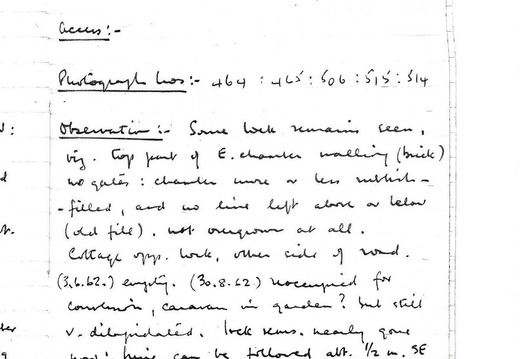 Access:-
Photograph Nos:- 464 : 465 : 506 : 515 : 514
Observation:- Some lock remains seen,
viz. top part of E. chamber walling (brick)
no gates : chamber more or less rubbish-
-filled, and no line left above or below
(old file). not overgrown at all.
Cottage opp. lock, other side of road.
(3.6.62.) empty. (30.8.62) unoccupied for
conversion, caravan in garden? but still
v. dilapidated. lock rems. nearly gone
line can be followed abt. 1/2 m. SE